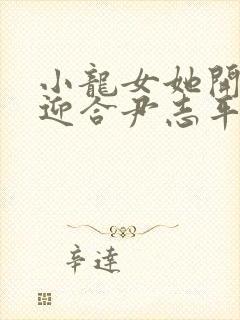 小龍女她開
迎合尹志平
辛達